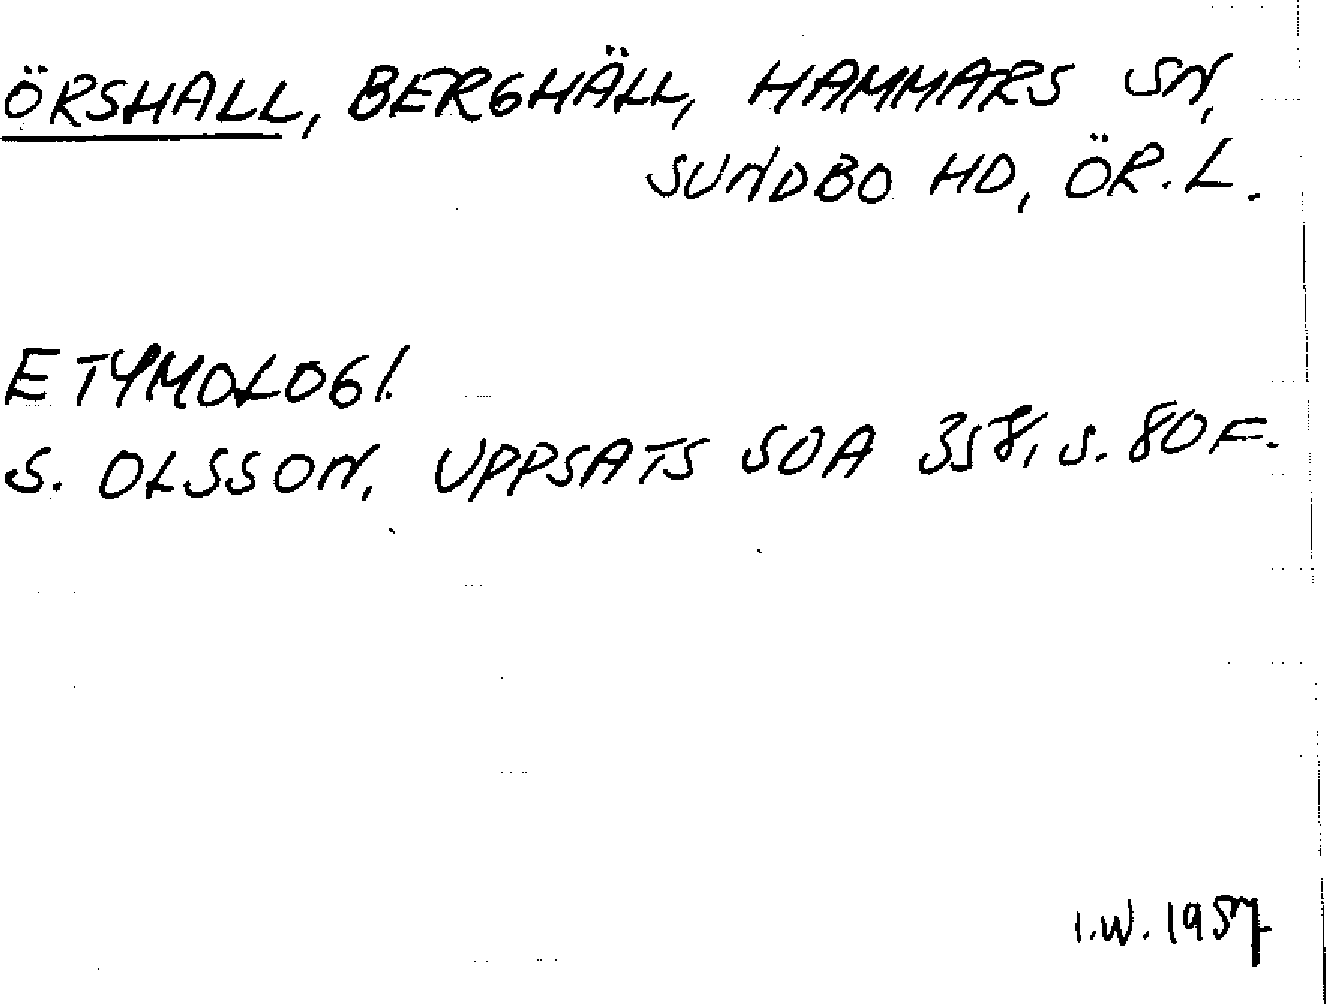 ÖRSHALL, BERGHÄLL, HAMMARS SN,
SUNDBO HD, ÖR. L.
ETYMOLOGI.
S. OLSSON, UPPSATS SOA 358, S. 80 F.
I.W. 1957